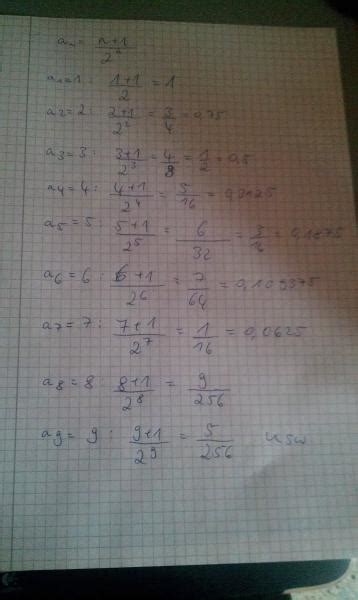 aₙ = (n+1)/2ⁿ
a₁=1 : (1+1)/2 = 1
a₂=2 : (2+1)/2² = 3/4 = 0,75
a₃=3 : (3+1)/2³ = 4/8 = 1/2 = 0,5
a₄=4 : (4+1)/2⁴ = 5/16 = 0,3125
a₅=5 : (5+1)/2⁵ = 6/32 = 3/16 = 0,1875
a₆=6 : (6+1)/2⁶ = 7/64 = 0,109375
a₇=7 : (7+1)/2⁷ = 1/16 = 0,0625
a₈=8 : (8+1)/2⁸ = 9/256
a₉=9 : (9+1)/2⁹ = 5/256 usw